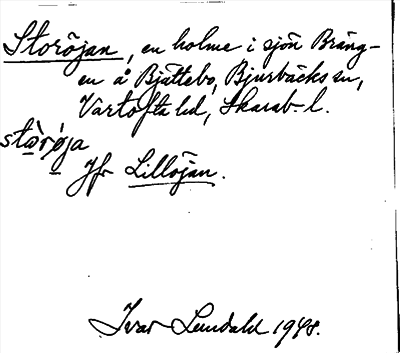 Storöjan, en holme i sjön Bräng-
en å Bjättebo, Bjurbäcks sn,
Vartofta hd, Skarab. l.
stòrø̀ja
Jfr Lillöjan.
Ivar Lundahl 1948.